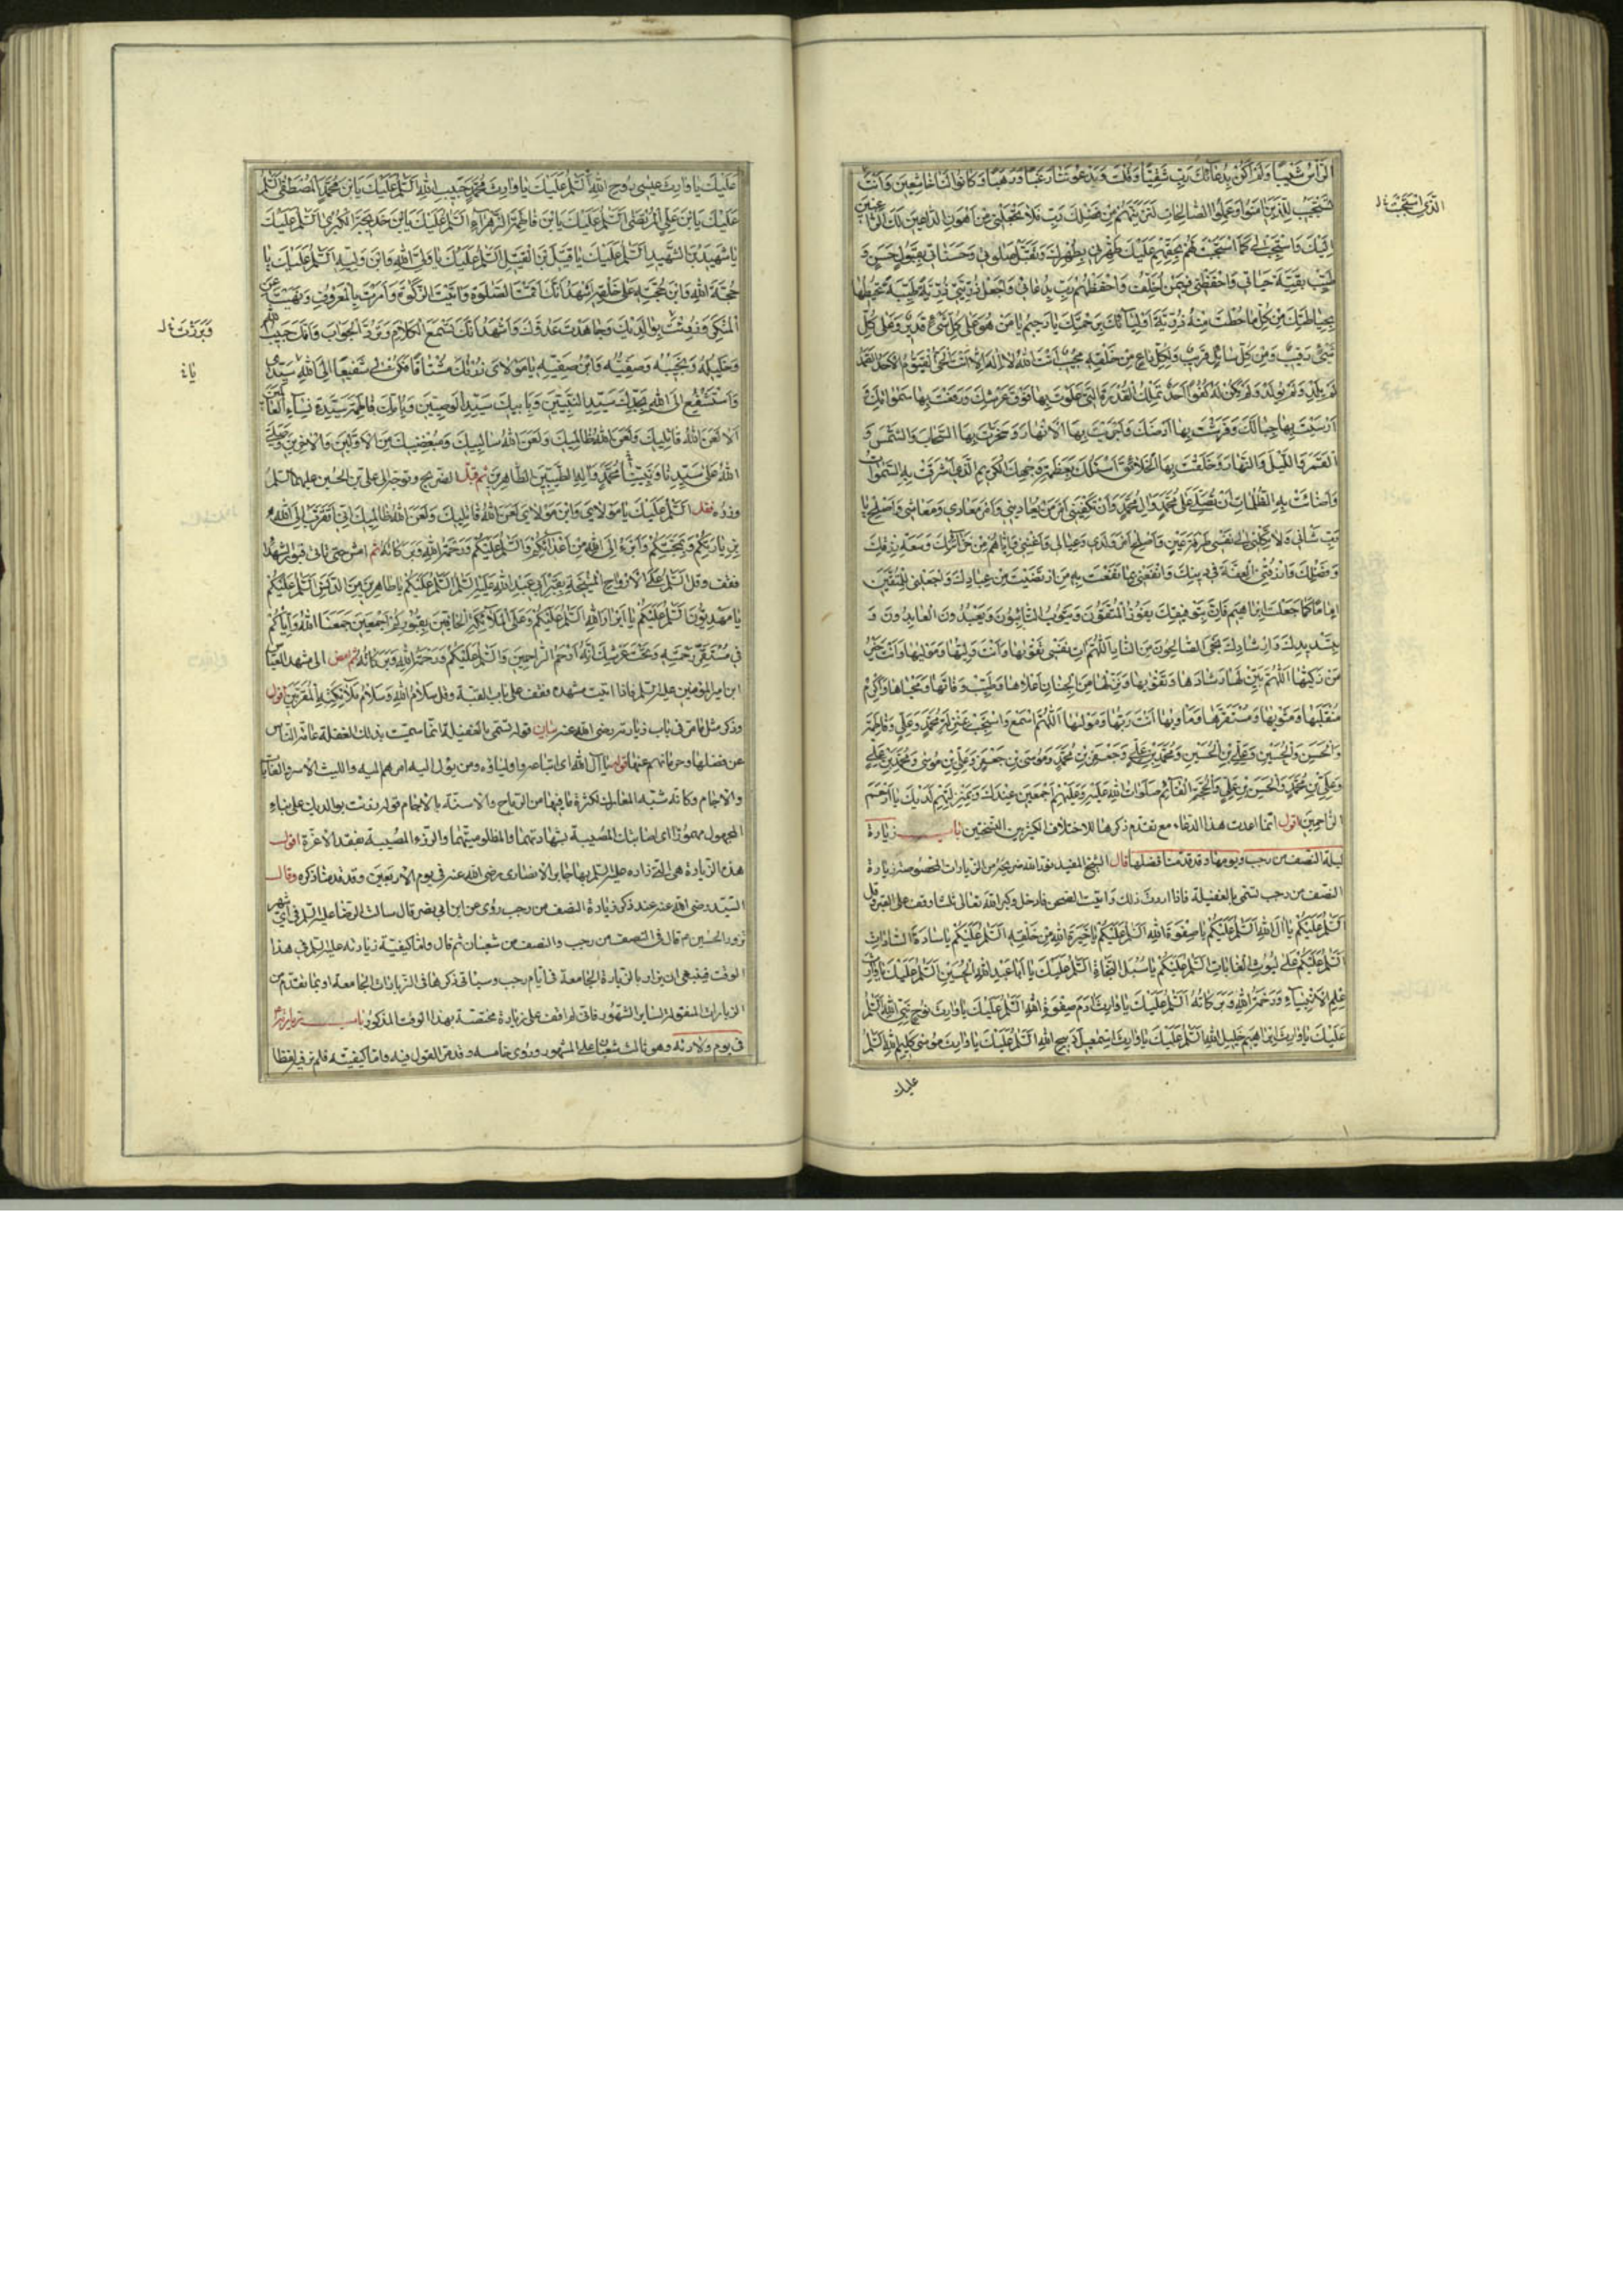 الرأس شيبا ولم أكن بدعائك رب شقيا وقلت ويدعوننا رغبا ورهبا وكانوا لنا خاشعين وأنت
تستجيب للذين آمنوا وعملوا الصالحات لتزيدهم من فضلك رب فلا تجعلني من أهون الداعين لك الراغبين
إليك واستجب لي كما استجبت لهم بحقهم عليك طهرني بطهرك وتقبل صلوتي وحسناتي بقبول حسن و
طيب بقية حياتي واحفظني فيمن أخلف واحفظهم رب بدعائي واجعل ذريتي ذرية طيبة تحيطها
بحياطتك من كل ما حطت منه ذرية أوليائك برحمتك يا رحيم يا من هو على كل شيء قدير وعلى كل
شيء رقيب ومن كل سائل قريب ولكل داع من خلقه مجيب أنت الله لا إله إلا أنت الحي القيوم الأحد الصمد
لم يلد ولم يولد ولم يكن له كفوا أحد تملك القدرة التي علوت بها فوق عرشك ورفعت بها سمواتك و
أرسيت بها جبالك وفرشت بها أرضك وأجريت بها الأنهار وسخرت بها السحاب والشمس و
القمر والليل والنهار وخلقت بها الخلائق أسئلك بعظمة وجهك الكريم الذي أشرقت به السموات
وأضاءت به الظلمات أن تصلي على محمد وآل محمد وأن تكفيني أمر من يعاديني وأمر معادي ومعاشي وأصلح يا
رب شأني ولا تكلني إلى نفسي طرفة عين وأصلح أمر ولدي وعيالي وأغنني وإياهم من خزائنك وسعة رزقك
وفضلك وارزقني الفقه في دينك وانفعني بما نفعت به من ارتضيت من عبادك واجعلني للمتقين
إماما كما جعلت إبراهيم فإن بتوفيقك يفوز المتقون ويتوب التائبون ويعبدون العابدون و
بتسديدك وإرشادك نجى الصالحون من النار اللهم آت نفسي تقويها وأنت وليها ومولاها وأنت خير
من زكيها اللهم بين لها رشادها وتقويها ونزلها من الجنان أعلاها وطيب وفاتها ومحياها وأكرم
منقلبها ومثويها ومستقرها ومأويها أنت ربها ومولاها اللهم اسمع واستجب بمنزلة محمد وعلي وفاطمة
والحسن والحسين وعلي بن الحسين ومحمد بن علي وجعفر بن محمد وموسى بن جعفر وعلي بن موسى ومحمد بن علي
وعلي بن محمد والحسن بن علي والحجة القائم صلوات الله عليه وعليهم أجمعين عندك وبمنزلتهم لديك يا أرحم
الراحمين أقول إنما أعدت هذا الدعاء مع تقدم ذكرها للاختلاف الكثير بين النسختين باب زيارة
ليلة النصف من رجب ويومها وقد قدمنا فضلها قال الشيخ المفيد نور الله ضريحه من الزيارات المخصوصة زيارة
النصف من رجب تسمى بالغفيلة فإذا أردت ذلك وأتيت الصحن فادخل وكبر الله تعالى ثلاثا وقف على القبر وقل
السلم عليكم يا آل الله السلم عليكم يا صفوة الله السلم عليكم يا خيرة الله من خلقه السلم عليكم يا سادة السادات
السلم عليكم يا ليوث الغابات السلم عليكم يا سبل النجاة السلم عليك يا أبا عبد الله الحسين السلم عليك يا وارث
علم الأنبياء ورحمة الله وبركاته السلم عليك يا وارث آدم صفوة الله السلم عليك يا وارث نوح نبي الله السلم
عليك يا وارث إبراهيم خليل الله السلم عليك يا وارث إسمعيل ذبيح الله السلم عليك يا وارث موسى كليم الله السلم
عليك
عليك يا وارث عيسى روح الله السلم عليك يا وارث محمد حبيب الله السلم عليك يابن محمد المصطفى السلم
عليك يابن علي المرتضى السلم عليك يابن فاطمة الزهراء السلم عليك يابن خديجة الكبرى السلم عليك
يا شهيد بن الشهيد السلم عليك يا قتيل بن القتيل السلم عليك يا ولي الله وابن وليه السلم عليك يا
حجة الله وابن حجته على خلقه أشهد أنك أقمت الصلوة وآتيت الزكوة وأمرت بالمعروف ونهيت عن
المنكر ورزئت بوالديك وجاهدت عدوك وأشهد أنك تسمع الكلام وترد الجواب وأنك حبيب الله
وخليله ونجيبه وصفيه وابن صفيه يا مولاي زرتك مشتاقا فكن لي شفيعا إلى الله يا سيدي
وأستشفع إلى الله بجدك سيد النبيين وبأبيك سيد الوصيين وبأمك فاطمة سيدة نساء العالمين
ألا لعن الله قاتليك ولعن الله ظالميك ولعن الله سالبيك ومبغضيك من الأولين والآخرين وصلى
الله على سيدنا ونبينا محمد وآله الطيبين الطاهرين ثم قبل الضريح وتوجه إلى علي بن الحسين عليهما السلم
وزره فقل السلم عليك يا مولاي وابن مولاي لعن الله قاتليك ولعن الله ظالميك إني أتقرب إلى الله
بزيارتكم وبمحبتكم وأبرء إلى الله من أعدائكم والسلم عليكم ورحمة الله وبركاته ثم امش حتى تأتي قبور الشهداء
فقف وقل السلم على الأرواح المنيخة بقبر أبي عبد الله عليه السلم السلم عليكم يا طاهرين من الدنس السلم عليكم
يا مهديون السلم عليكم يا أبرار الله السلم عليكم وعلى الملائكة الحافين بقبوركم أجمعين جمعنا الله وإياكم
في مستقر رحمته وتحت عرشه إنه أرحم الراحمين والسلم عليكم ورحمة الله وبركاته ثم امض إلى مشهد العباس
ابن أمير المؤمنين عليه السلم فإذا أتيت مشهده فقف على باب القبة وقل سلام الله وسلام ملائكته المقربين أقول
وذكر مثل ما مر في باب زيارته رضي الله عنه بيان قوله تسمى بالغفيلة إنما سميت بذلك لغفلة عامة الناس
عن فضلها وحرمانهم عنها قوله يا آل الله أي أتباعه وأولياؤه ومن يؤل إليه أمرهم إليه والليث الأسد والغابة
والآجام وكأنه شبه المعارك لكثرة ما فيها من الرماح والأسنة بالآجام قوله رزئت بوالديك على بناء
المجهول مهموزا أي أصابتك المصيبة بشهادتهما والمظلوميتهما والرزء المصيبة بفقد الأعزة أقول
هذه الزيارة هي التي زاره عليه السلم بها جابر الأنصاري رضي الله عنه في يوم الأربعين وقد قدمنا ذكره وقال
السيد رضي الله عنه عند ذكر زيارة النصف من رجب روي عن ابن أبي نصر قال سألت الرضا عليه السلم في أي شهر
نزور الحسين ع قال في النصف من رجب والنصف من شعبان ثم قال وأما كيفية زيارته عليه السلم في هذا
الوقت فينبغي أن يزار بالزيارة الجامعة في أيام رجب وسيأتي ذكرها في الزيارات الجامعة أو بما تقدم من
الزيارات المنقولة لساير الشهور فإني لم أقف على زيارة مختصة بهذا الوقت المذكور باب زيارته
في يوم ولادته وهو ثالث شعبان على المشهور وروي خامسه وقد مر القول فيه وأما كيفيته فلم نر فيه لفظا